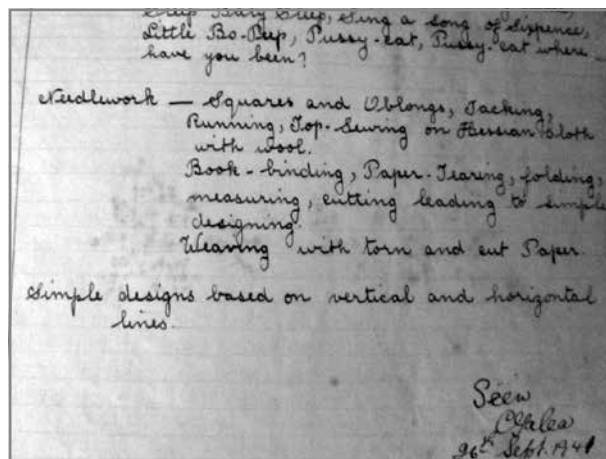 Sing a song of Sixpence,
Little Bo-Peep, Pussy-cat, Pussy-cat where
have you been?
Needlework — Squares and Oblongs, Tacking,
Running, Top-Sewing on Hessian Cloth
with wool.
Book-binding, Paper-Tearing, folding,
measuring, cutting leading to simple
designing.
Weaving with torn and cut Paper.
Simple designs based on vertical and horizontal
lines.
Seen
26th Sept. 1941